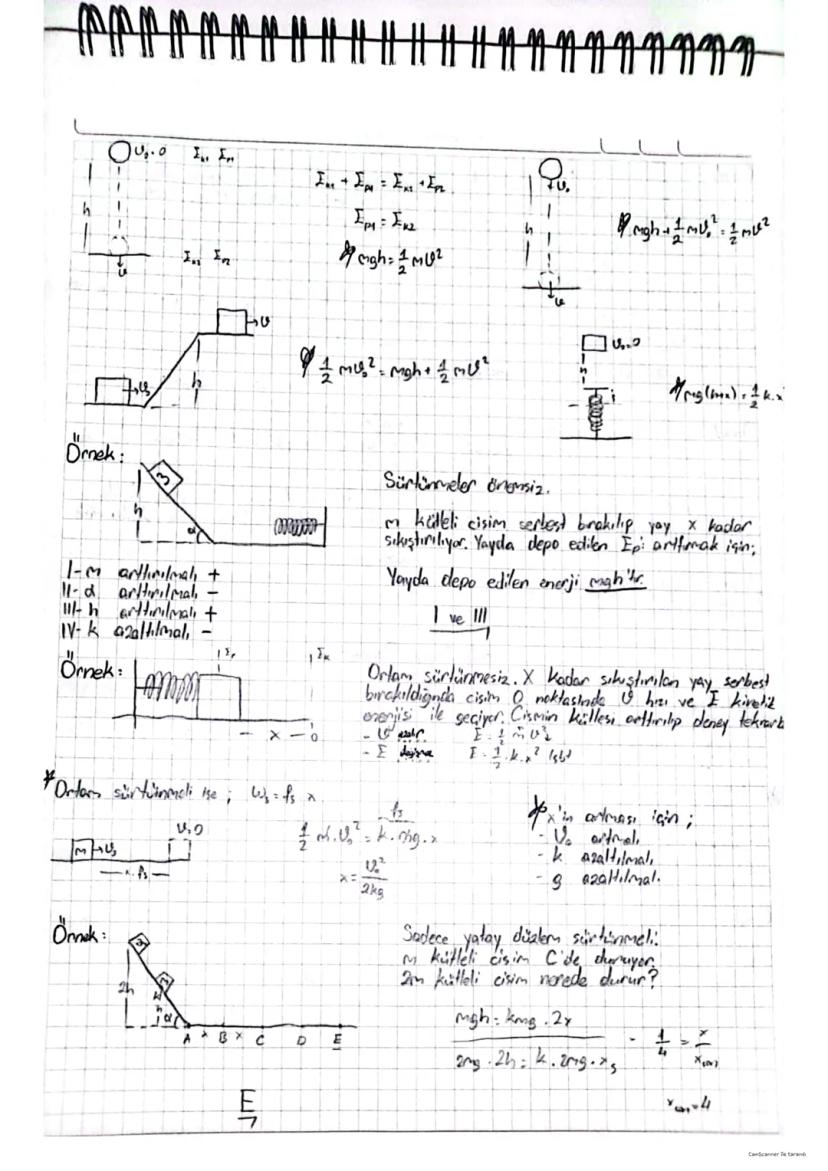 υ₀=0 E_k1 E_p1
E_k1 + E_p1 = E_k2 + E_p2
υ₀
h
E_p1 = E_k2
h
mgh + 1/2 mυ₀² = 1/2 mυ²
E_k2 E_p2
mgh = 1/2 mυ²
υ
υ
υ
υ₀=0
h
1/2 mυ₀² = mgh + 1/2 mυ²
h
υ₀
mg(h+x) = 1/2 k.x
Örnek:
m
h
α
Sürtünmeler önemsiz.
m kütleli cisim serbest bırakılıp yay x kadar
sıkıştırılıyor. Yayda depo edilen Epi arttırmak için;
I- m arttırılmalı +
II- α arttırılmalı -
III- h arttırılmalı +
IV- k azaltılmalı -
Yayda depo edilen enerji mgh'tır.
I ve III
Örnek:
E_k
- x - 0
Ortam sürtünmesiz. X kadar sıkıştırılan yay serbest
bırakıldığında cisim O noktasında υ hızı ve E kinetik
enerjisi ile geçiyor. Cismin kütlesi arttırılıp deney tekrarla
- υ azalır E = 1/2 m υ²
- E değişmez E = 1/2 . k . x²
* Ortam sürtünmeli ise; W_s = f_s x
m υ₀
x f_s
f_s
1/2 m.υ₀² = k.mg.x
x = υ₀² / 2kg
x'in artması için;
- υ₀ artmalı
- k azaltılmalı
- g azaltılmalı.
Örnek:
2h
h
α
A x B x C D E
Sadece yatay düzlem sürtünmeli.
m kütleli cisim C'de duruyor
2m kütleli cisim nerede durur?
mgh = kmg . 2x
2mg . 2h = k . 2mg . x_s
- 1/4 = x
E